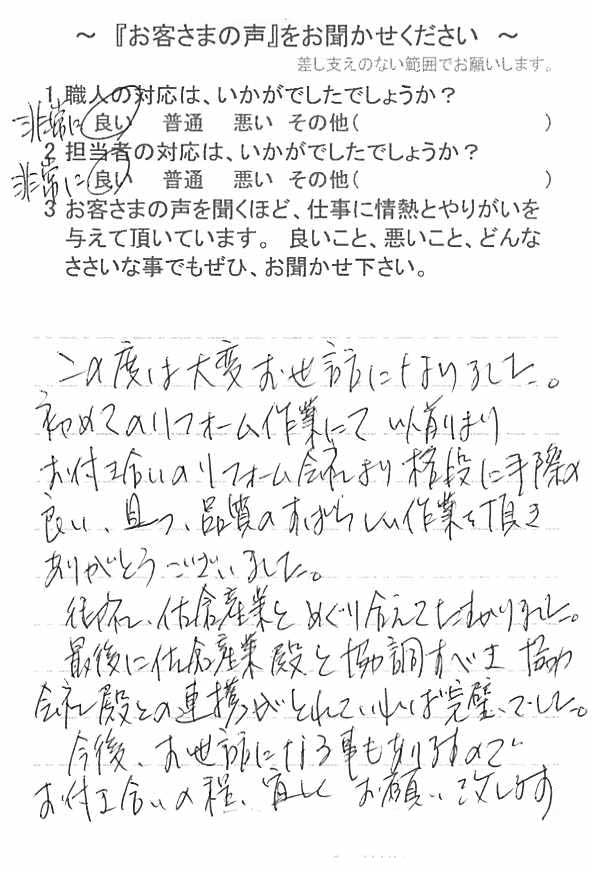 ～ 『お客さまの声』をお聞かせください ～
差し支えのない範囲でお願いします。
1 職人の対応は、いかがでしたでしょうか？
非常に 良い 普通 悪い その他( )
2 担当者の対応は、いかがでしたでしょうか？
非常に 良い 普通 悪い その他( )
3 お客さまの声を聞くほど、仕事に情熱とやりがいを
与えて頂いています。 良いこと、悪いこと、どんな
ささいな事でもぜひ、お聞かせ下さい。
この度は大変お世話になりました。
初めてのリフォーム作業にて 以前より
お付き合いのリフォーム会社より 格段に手際の
良い、且つ、品質のすばらしい作業を頂き
ありがとうございました。
佐倉産業と めぐり合えてたすかりました。
最後に佐倉産業殿と協調すべき
会社殿との連携がとれていれば完璧でした。
今後、お世話になる事もありますので
お付き合いの程、宜しく お願い致します